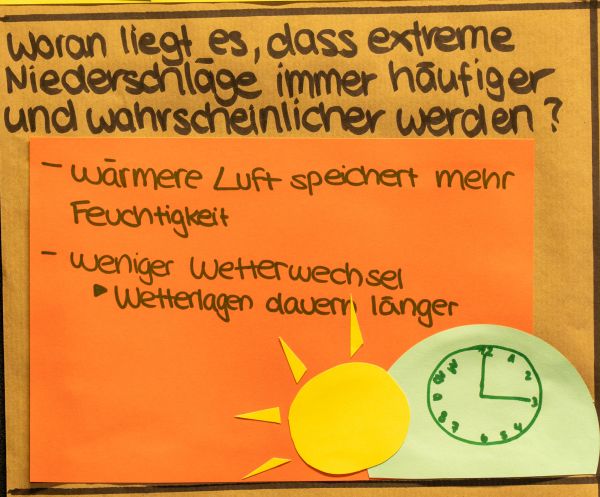 Woran liegt es, dass extreme
Niederschläge immer häufiger
und wahrscheinlicher werden?
- Wärmere Luft speichert mehr
Feuchtigkeit
- weniger Wetterwechsel
▶ Wetterlagen dauern länger
12
1
2
3
4
5
6
7
8